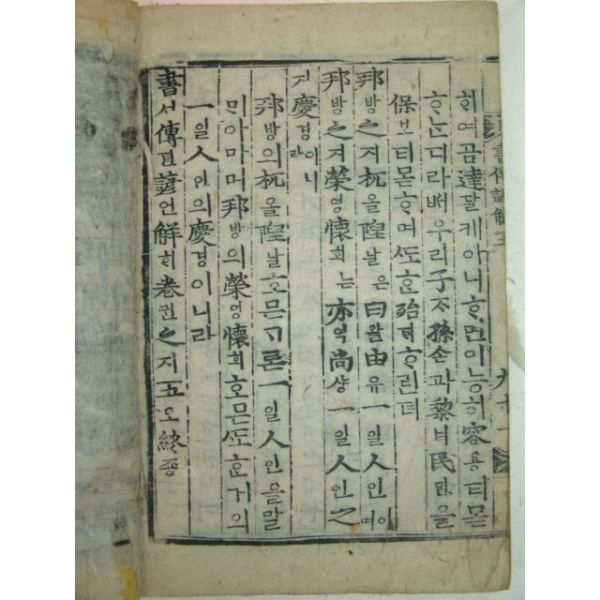 ᄒᆡ여곰達달케아니ᄒᆞ면이능히容용티몯
ᄒᆞᄂᆞᆫ디라ᄡᅥ우리子ᄌᆞ孫손과黎려民민을
保보티몯ᄒᆞ며ᄯᅩᄒᆞᆫ殆ᄐᆡᄒᆞ린뎌
邦방之지杌올隉날은曰왈由유一일人인이여
邦방之지榮영懷회는亦역尚샹一일人인之
지慶경이니라
邦방의杌올隉날호믄ᄀᆞ론一일人인을말
ᄆᆡ아마며邦방의榮영懷회호믄ᄯᅩᄒᆞᆫ거의
一일人인의慶경이니라
書셔傳뎐諺언解ᄒᆡ卷권之지五오終종
書傳諺解五